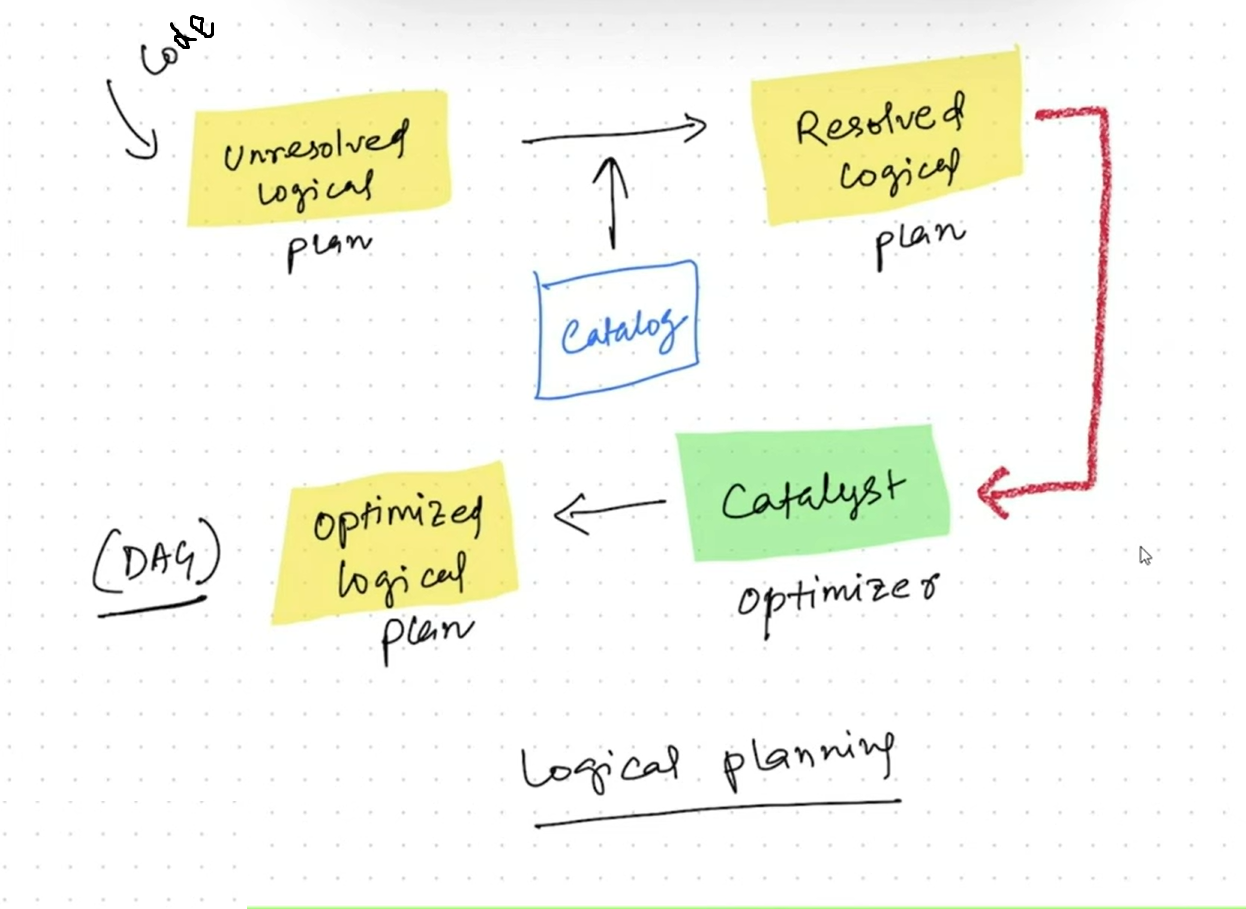 Code
Unresolved
logical
plan
Resolved
logical
plan
Catalog
Catalyst
optimizer
optimized
logical
plan
(DAG)
Logical planning